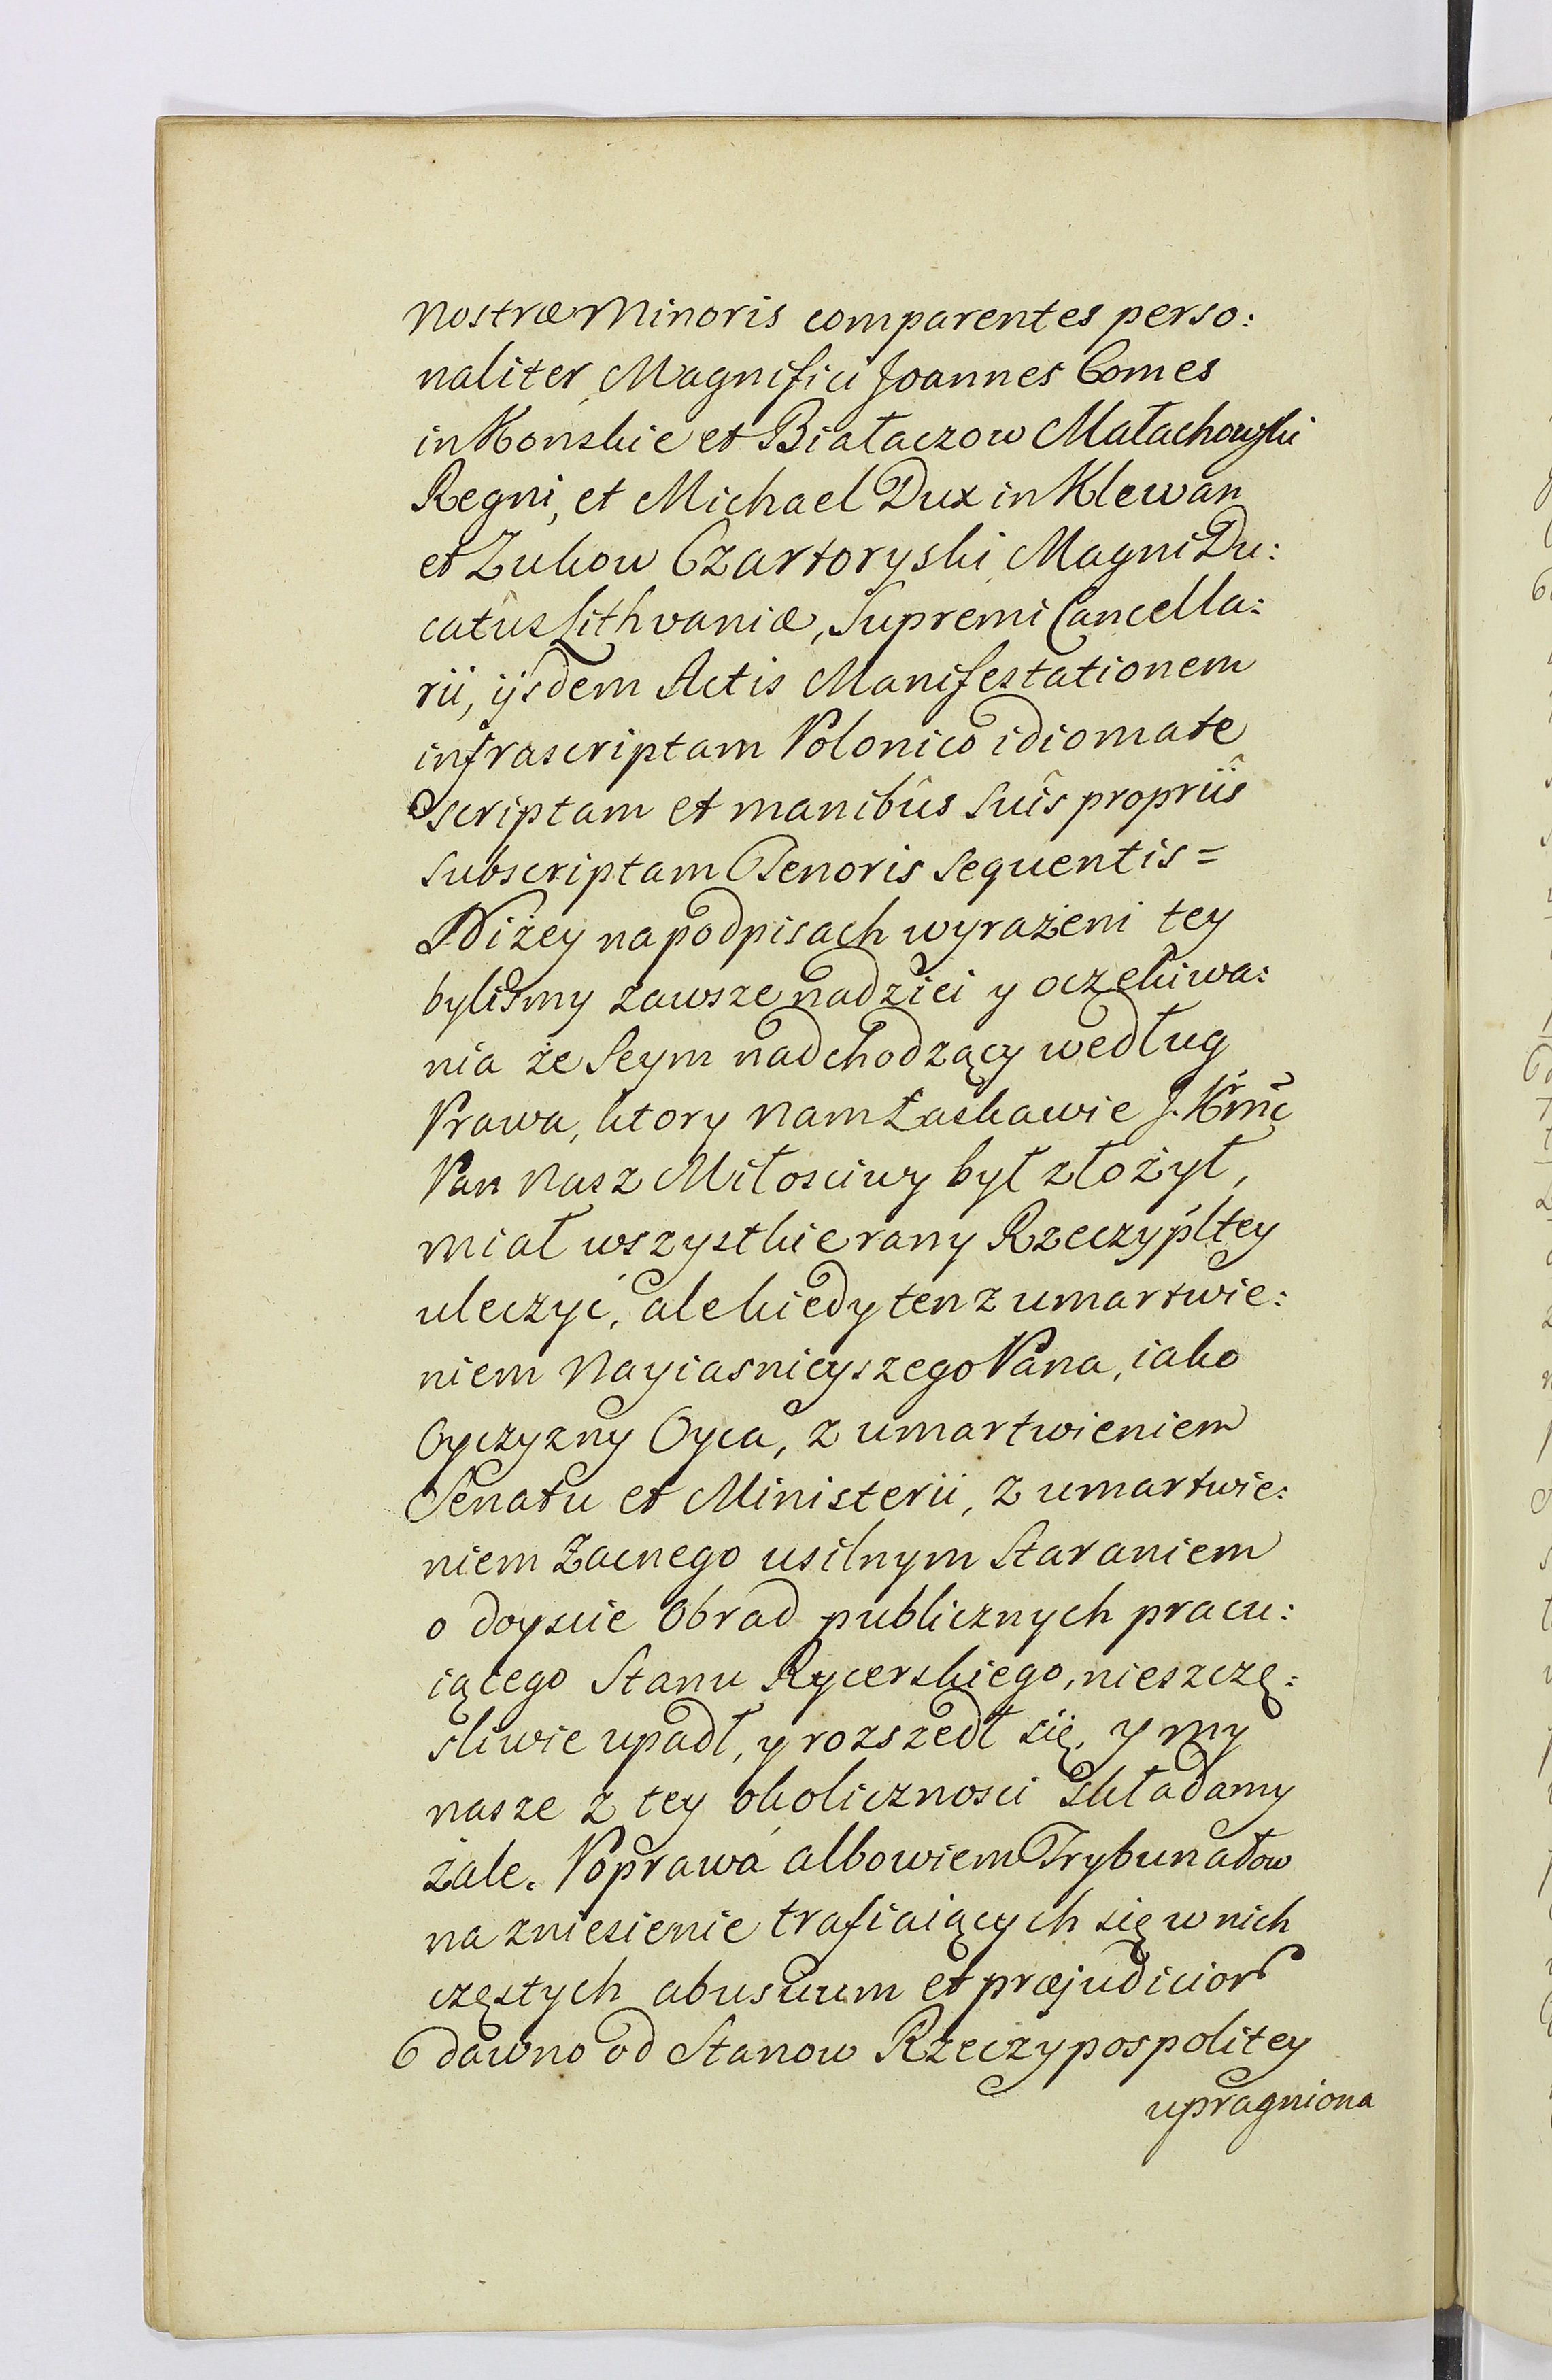 Nostræ Minoris comparentes perso:
naliter Magnifici Joannes Comes
in Końskie et Białaczow Małachowski
Regni, et Michael Dux in Klewan
et Zukow Czartoryski Magni Du:
catûs Lithvaniæ, Supremi Cancella:
rii, ijsdem Actis Manifestationem
infrascriptam Polonico idiomate
scriptam et manibûs suîs propriîs
subscriptam Tenoris sequentis =
Niżey na podpisach wyrażeni tey
bylismy zawsze nadziei y oczekiwa:
nia że Seym nadchodzący według
Prawa, ktory Nam Łaskawie J. Kr̃mć
Pan Nasz Miłosciwy był złożył,
miał wszystkie rany Rzeczypltey
uleczyć, ale kiedy ten z umartwie:
niem Nayiasnieyszego Pana, iako
Oyczyzny Oyca, z umartwieniem
Senatu et Ministerii, z umartwie:
niem Zacnego usilnym staraniem
o doyscie Obrad publicznych pracu:
iącego Stanu Rycerskiego, nieszczę:
sliwie upadł, y rozszedł się, y my
nasze z tey okolicznosci składamy
żale. Poprawa albowiem Trybunałow
na zniesienie trafiaiących się w nich
częstych abusuum et præjudicior̃
dawno od Stanow Rzeczypospolitey
upragniona